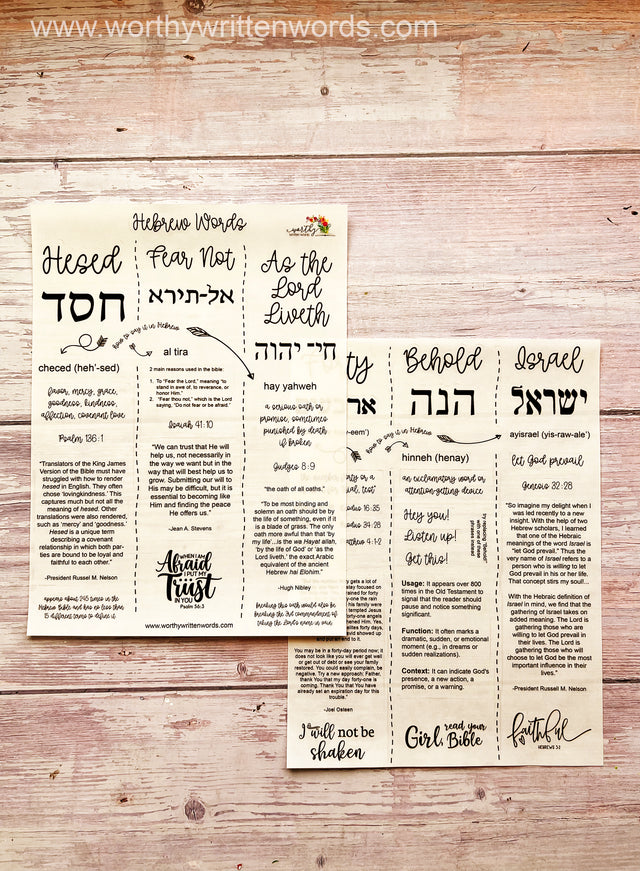 www.worthywrittenwords.com
Hebrew Words
worthy
Hesed
חסד
checed (heh'-sed)
favor, mercy, grace,
goodness, kindness,
affection, covenant love
Psalm 136:1
"Translators of the King James
Version of the Bible must have
struggled with how to render
hesed in English. They often
chose 'lovingkindness.' This
captures much but not all the
meaning of hesed. Other
translations were also rendered,
such as 'mercy' and 'goodness.'
Hesed is a unique term
describing a covenant
relationship in which both par-
ties are bound to be loyal and
faithful to each other."
-President Russel M. Nelson
appears about 245 times in the
Hebrew Bible and has no less than
15 different terms to define it
Fear Not
אל-תירא
how to say it in Hebrew
al tira
2 main reasons used in the bible:
1. To "Fear the Lord," meaning "to
stand in awe of, to reverance, or
honor Him."
2. "Fear thou not," which is the Lord
saying, "Do not fear or be afraid."
Isaiah 41:10
"We can trust that He will
help us, not necessarily in
the way we want but in the
way that will best help us
grow. Submitting our will to
His may be difficult, but it is
essential to becoming like
Him and finding the peace
He offers us."
-Jean A. Stevens
WHEN I AM
Afraid
I PUT MY
Trust
IN YOU
Psalm 56:3
www.worthywrittenwords.com
As the
Lord
Liveth
חי יהוה
hay yahweh
a serious oath or
promise, sometimes
punished by death
if broken
Judges 8:9
"the oath of all oaths."
"To be most binding and
solemn an oath should be by
the life of something, even if it
is a blade of grass. The only
oath more awful than that 'by
my life'...is the wa Hayat allah,
'by the life of God' or 'as the
Lord liveth.' the exact Arabic
equivalent of the ancient
Hebrew hai Elohim."
-Hugh Nibley
breaking this oath would also be
breaking the 3rd commandment of
taking the Lord's name in vain
ty
אר
-eem')
how to say it in Hebrew
xodus 16:35
xodus 34:28
atthew 4:1-2
You may be in a forty-day period now; it
does not look like you will ever get well
or get out of debt or see your family
restored. You could easily complain, be
negative. Try a new approach: Father,
thank You that my day forty-one is
coming. Thank You that You have
already set an expiration day for this
trouble."
-Joel Osteen
I will not be
shaken
Behold
הנה
hinneh (henay)
an exclamatory word or
attention-getting device
Hey you!
Listen up!
Get this!
Try replacing "Behold"
with one of these
phrases instead
Usage: It appears over 800
times in the Old Testament to
signal that the reader should
pause and notice something
significant.
Function: It often marks a
dramatic, sudden, or emotional
moment (e.g., in dreams or
sudden realizations).
Context: It can indicate God's
presence, a new action, a
promise, or a warning.
Girl, read your
Bible
Israel
ישראל
ayisrael (yis-raw-ale')
let God prevail
Genesis 32:28
"So imagine my delight when I
was led recently to a new
insight. With the help of two
Hebrew scholars, I learned
that one of the Hebraic
meanings of the word Israel is
"let God prevail." Thus the
very name of Israel refers to a
person who is willing to let
God prevail in his or her life.
That concept stirs my soul!...
With the Hebraic definition of
Israel in mind, we find that the
gathering of Israel takes on
added meaning. The Lord is
gathering those who are
willing to let God prevail in
their lives. The Lord is
gathering those who will
choose to let God be the most
important influence in their
lives."
-President Russell M. Nelson
faithful
HEBREWS 3:2